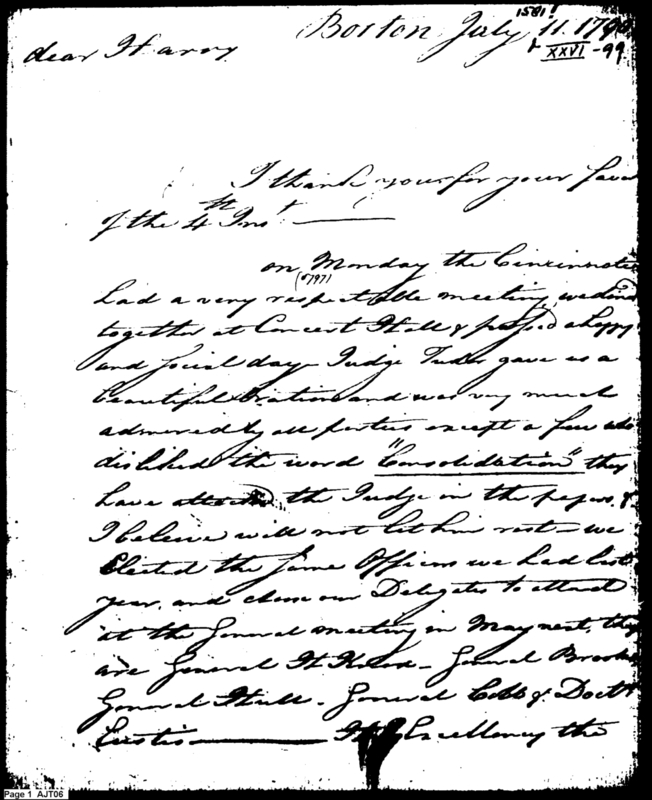 1581
Boston July 11. 179
XXVI - 99
dear Harry
I thank your for your favor
of the 4th Inst
on Monday the Cincinnatie
(1797)
had a very respectable meeting, we dind
together at Concert Hall & passed a happy
and social day - Judge Tudor gave us a
beautiful Oration and was very much
admired by all parties except a few who
disliked the word "Consolidation" they
have attacked the Judge in the papers, &
I believe will not let him rest - we
Elected the same Officers we had last
year, and chose our Delegates to attend
at the General meeting in May next, they
are General H Knox - General Brooks
General Hull - General Cobb & Doctr
Eustis His Excellency the
Page 1 AJT06